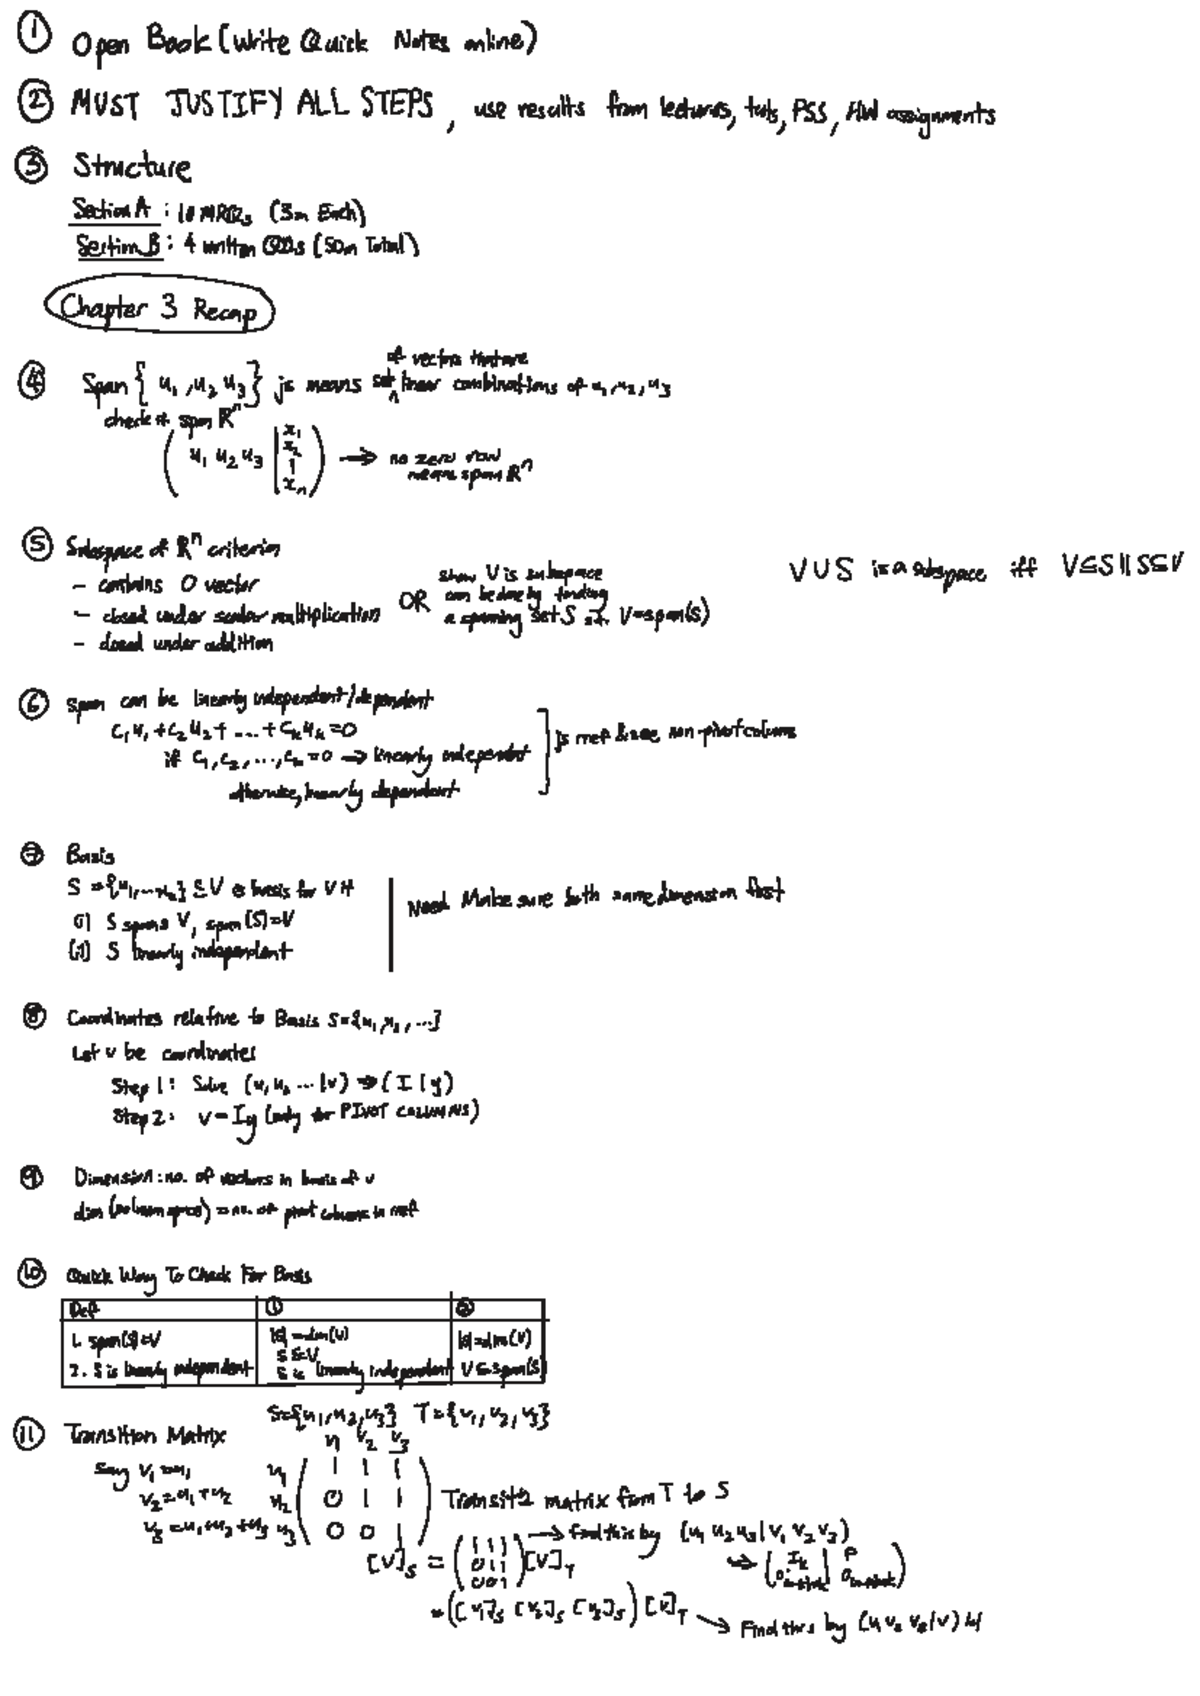 ① Open Book (Write Quick Notes online)
② MUST JUSTIFY ALL STEPS, use results from lectures, tuts, PSS, HW assignments
③ Structure
Section A : 10 MRQs (3m Each)
Section B : 4 written QDs (50m Total)
Chapter 3 Recap
④ Span { u₁, u₂ u₃ } js means set of vectors that are linear combinations of u₁, u₂, u₃
check if span ℝⁿ
( u₁ u₂ u₃ | x₁ x₂ | xₙ ) → no zero row means span ℝⁿ
⑤ Subspace of ℝⁿ criterion
- contains 0 vector
- closed under scalar multiplication
- closed under addition
OR show V is subspace can be done by finding a spanning set S s.t. V=span(S)
V∪S is a subspace iff V⊆S || S⊆V
⑥ Span can be linearly independent/dependent
c₁u₁+c₂u₂+...+cₖuₖ=0
if c₁,c₂,...,cₖ=0 → linearly independent
otherwise, linearly dependent
js rref & see non-pivot column
⑦ Basis
S={u₁,...uₖ} ⊆V is basis for V if
(i) S spans V, span(S)=V
(ii) S linearly independent
Need Make sure both same dimension first
⑧ Coordinates relative to Basis S={u₁,u₂,...}
Let v be coordinates
Step 1: Solve (u₁ u₂ ... | v) → ( I | y)
Step 2: v=Iy (only for PIVOT COLUMNS)
⑨ Dimension: no. of vectors in basis of v
dim (column space) = no. of pivot columns in rref
⑩ Quick Way To Check For Basis
Def ① ②
1. span(S)=V |S|=dim(V) |S|=dim(V)
S⊆V
2. S is linearly independent S is linearly independent V⊆span(S)
S={u₁,u₂,u₃} T={v₁,v₂,v₃}
⑪ Transition Matrix
v₁ v₂ v₃
Say v₁=u₁ u₁ 1 1 1
v₂=u₁+u₂ u₂ 0 1 1 Transit matrix from T to S
v₃=u₁+u₂+u₃ u₃ 0 0 1
→ find this by (u₁ u₂ u₃ | v₁ v₂ v₃)
[v]ₛ = (1 1 1 0 1 1 0 0 1) [v]ₜ
→ ( Iₖ | P
= ([v₁]ₛ [v₂]ₛ [v₃]ₛ) [v]ₜ → Find this by